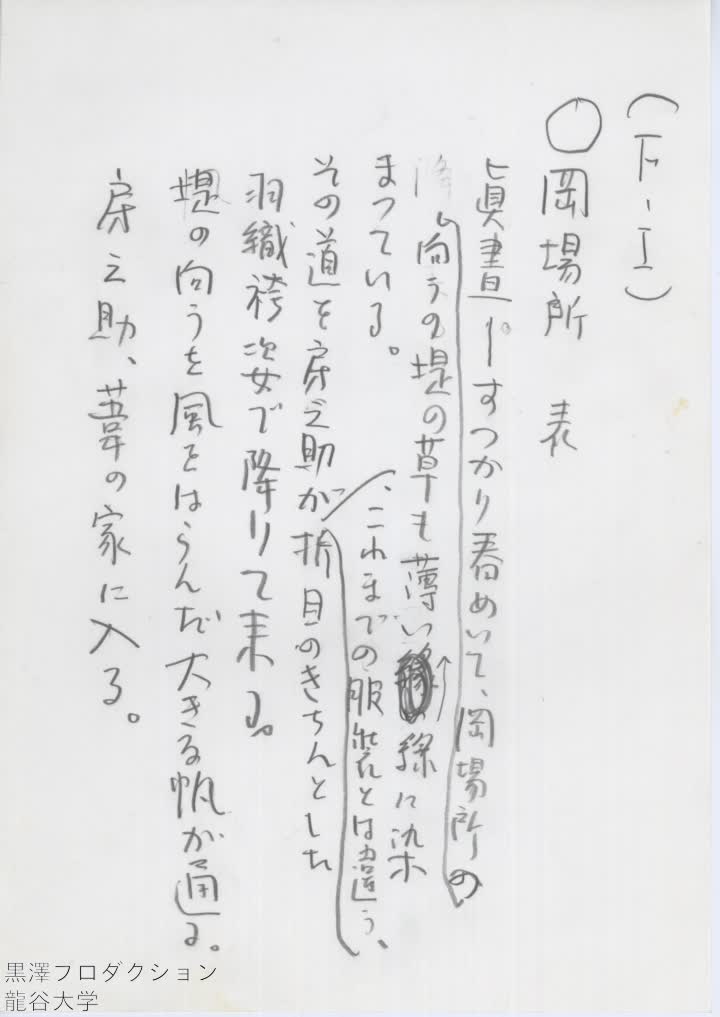 (下-1)
○岡場所 表
眞晝──すつかり春めいて、岡場所の
向うの堤の草も薄い緑に染
まつている。
、これまでの服装とは違う、
その道を房之助が折目のきちんとした
羽織袴姿で降りて来る。
堤の向うを風をはらんだ大きな帆が通る。
房之助、葦の家に入る。
黒澤プロダクション
龍谷大学